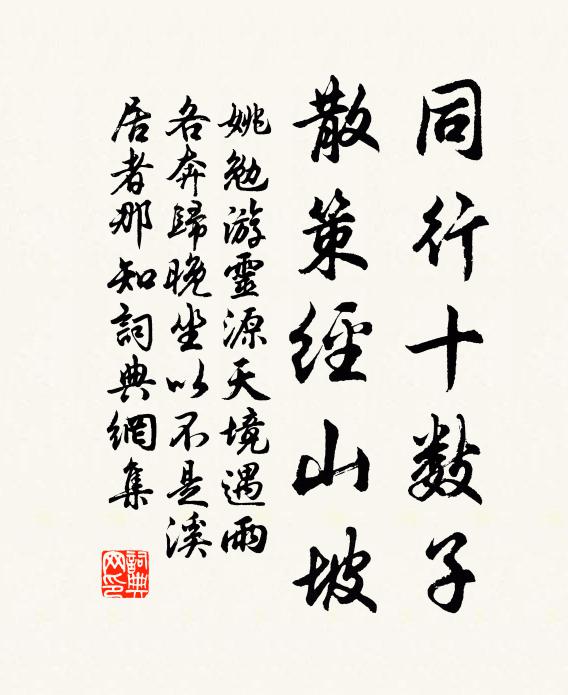 同行十數子
散策經山坡
姚勉游靈源天境遇雨
各奔歸晚坐以不是溪
居者那知詞典網集
詞典網印